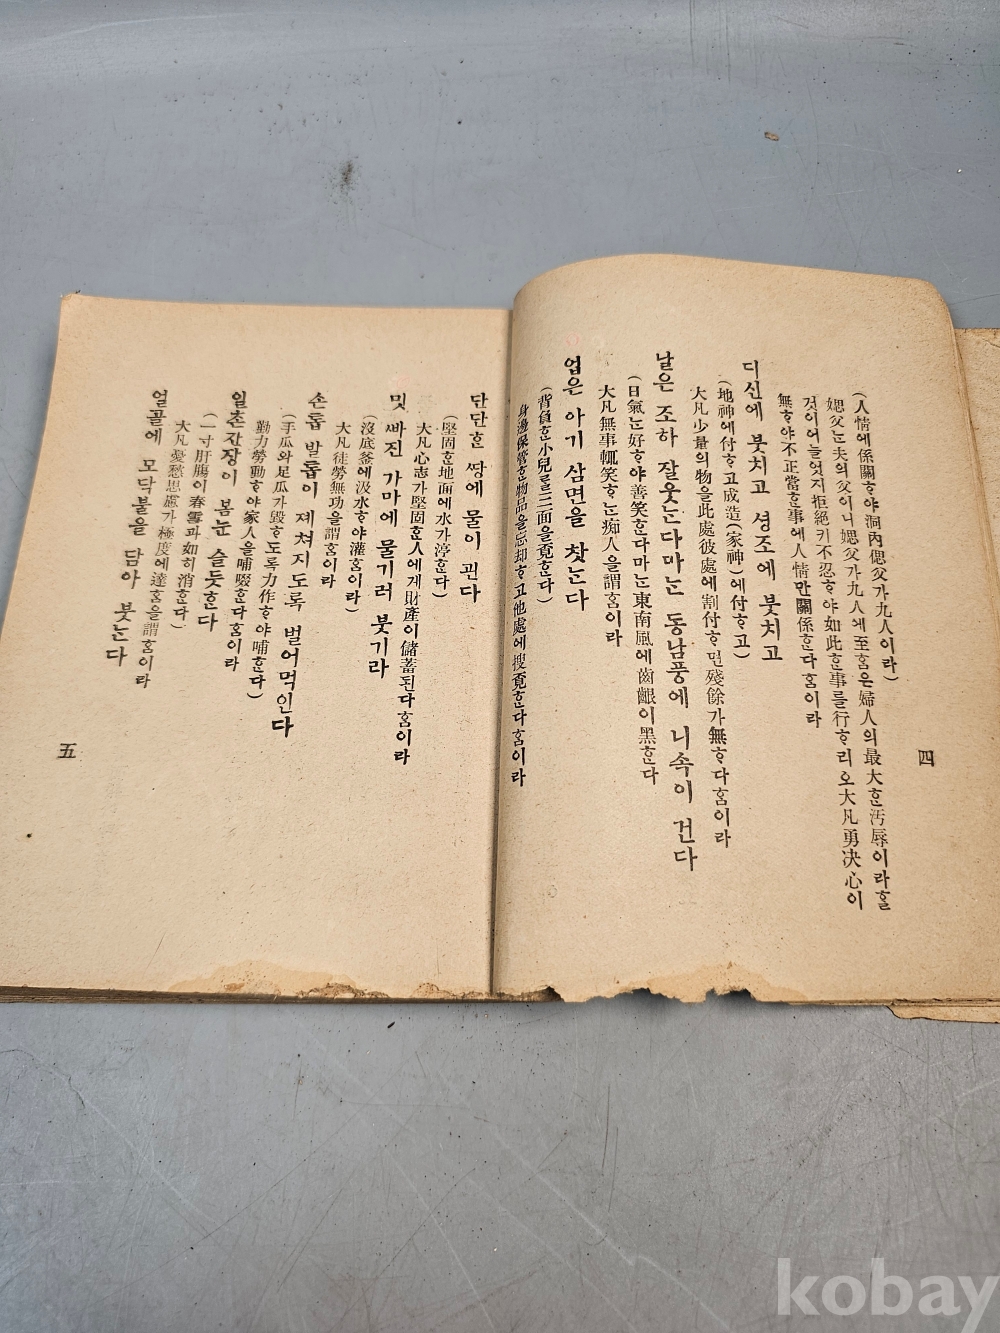 (人情에係關ᄒᆞ야洞內偲父가九人이라)
媤父ᄂᆞᆫ夫의父이니媤父가九人에至ᄒᆞᆷ은婦人의最大ᄒᆞᆫ汚辱이라ᄒᆞᆯ
것이어늘엇지拒絕키不忍ᄒᆞ야如此ᄒᆞᆫ事를行ᄒᆞ리오大凡勇決心이
無ᄒᆞ야不正當ᄒᆞᆫ事에人情만關係ᄒᆞᆫ다ᄒᆞᆷ이라
디신에 붓치고 셩조에 붓치고
(地神에付ᄒᆞ고成造(家神)에付ᄒᆞ고)
大凡少量의物을此處彼處에割付ᄒᆞ면殘餘가無ᄒᆞ다ᄒᆞᆷ이라
날은 조하 잘웃ᄂᆞᆫ다마ᄂᆞᆫ 동남풍에 니속이 건다
(日氣ᄂᆞᆫ好ᄒᆞ야善笑ᄒᆞᆫ다마ᄂᆞᆫ東南風에齒齦이黑ᄒᆞᆫ다
大凡無事輒笑ᄒᆞᄂᆞᆫ痴人을謂ᄒᆞᆷ이라
업은 아기 삼면을 찻ᄂᆞᆫ다
(背負ᄒᆞᆫ小兒를三面을覓ᄒᆞᆫ다)
身邊保管ᄒᆞᆫ物品을忘却ᄒᆞ고他處에搜覓ᄒᆞᆫ다ᄒᆞᆷ이라
四
단단ᄒᆞᆫ ᄯᅡᆼ에 물이 괸다
(堅固ᄒᆞᆫ地面에水가渟ᄒᆞᆫ다)
大凡心志가堅固ᄒᆞᆫ人에게財產이儲蓄된다ᄒᆞᆷ이라
밋 ᄲᅡ진 가마에 물기러 붓기라
(沒底釜에汲水ᄒᆞ야灌ᄒᆞᆷ이라)
大凡徒勞無功을謂ᄒᆞᆷ이라
손톱 발톱이 졔쳐지도록 벌어먹인다
(手瓜와足瓜가毁ᄒᆞ도록力作ᄒᆞ야哺ᄒᆞᆫ다)
勤力勞動ᄒᆞ야家人을哺啜ᄒᆞᆫ다ᄒᆞᆷ이라
일촌간장이 봄눈 슬듯ᄒᆞᆫ다
(一寸肝膓이春雪과如히消ᄒᆞᆫ다)
大凡憂愁思慮가極度에達ᄒᆞᆷ을謂ᄒᆞᆷ이라
얼골에 모닥불을 담아 붓ᄂᆞᆫ다
五
kobay